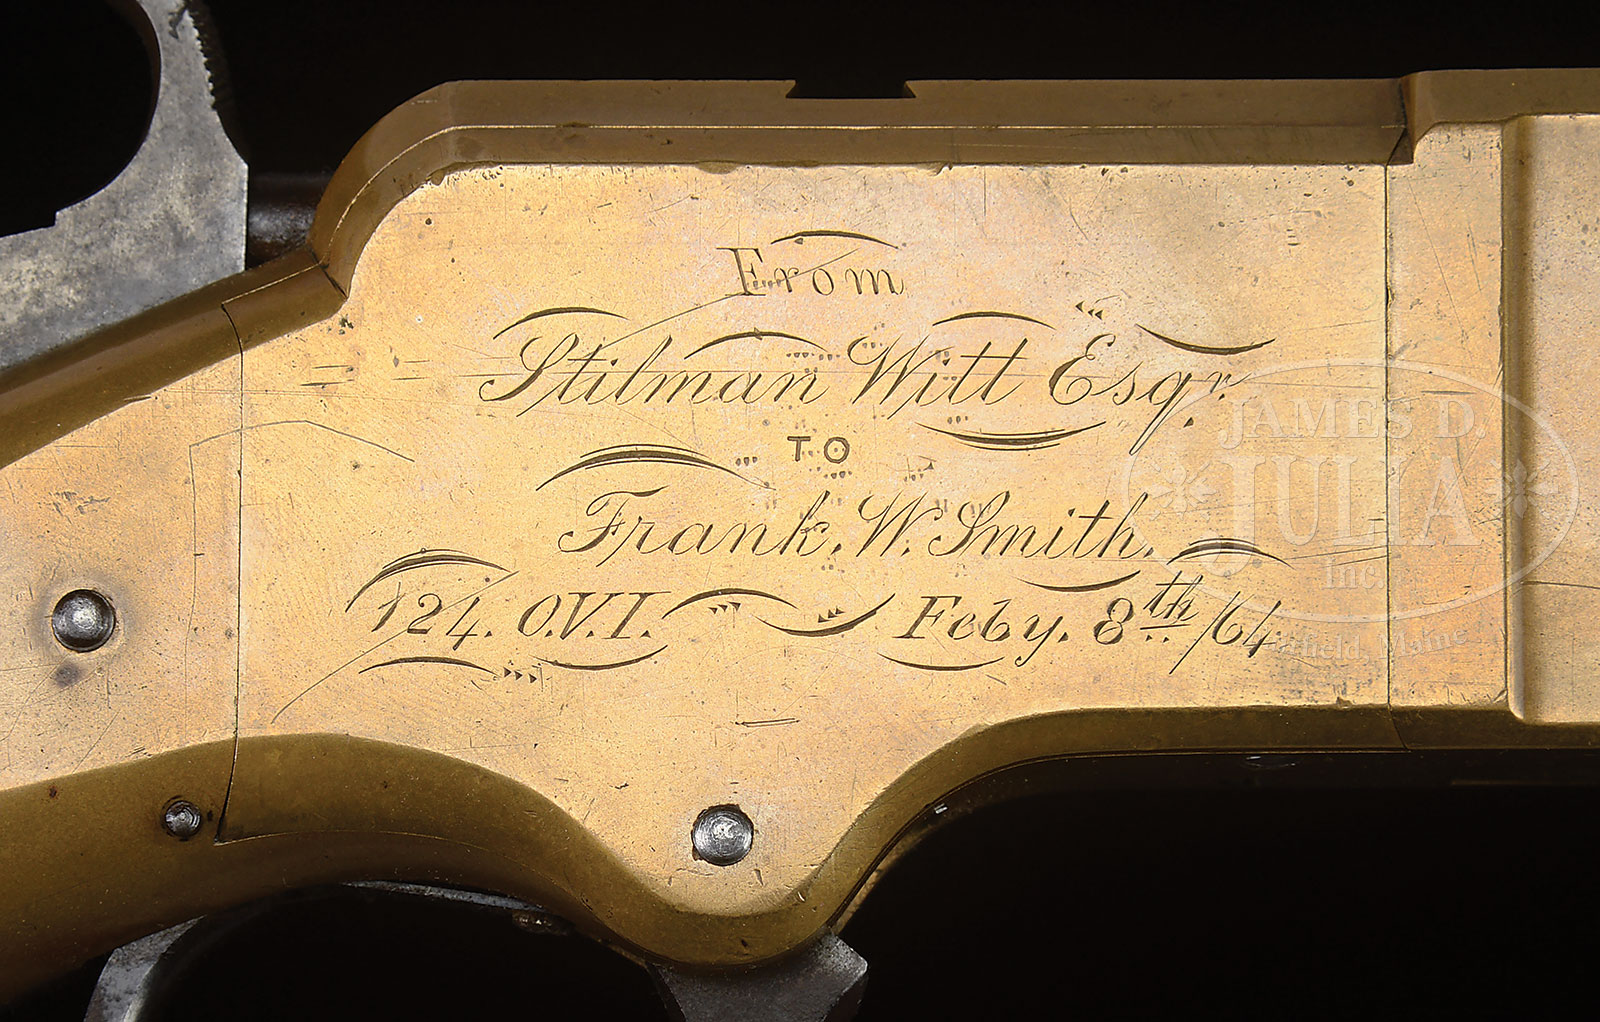 From
Stilman Witt Esqr.
TO
Frank. W. Smith.
124. O.V.I. Feby. 8th /64
JAMES D.
JULIA
Inc.
Fairfield, Maine